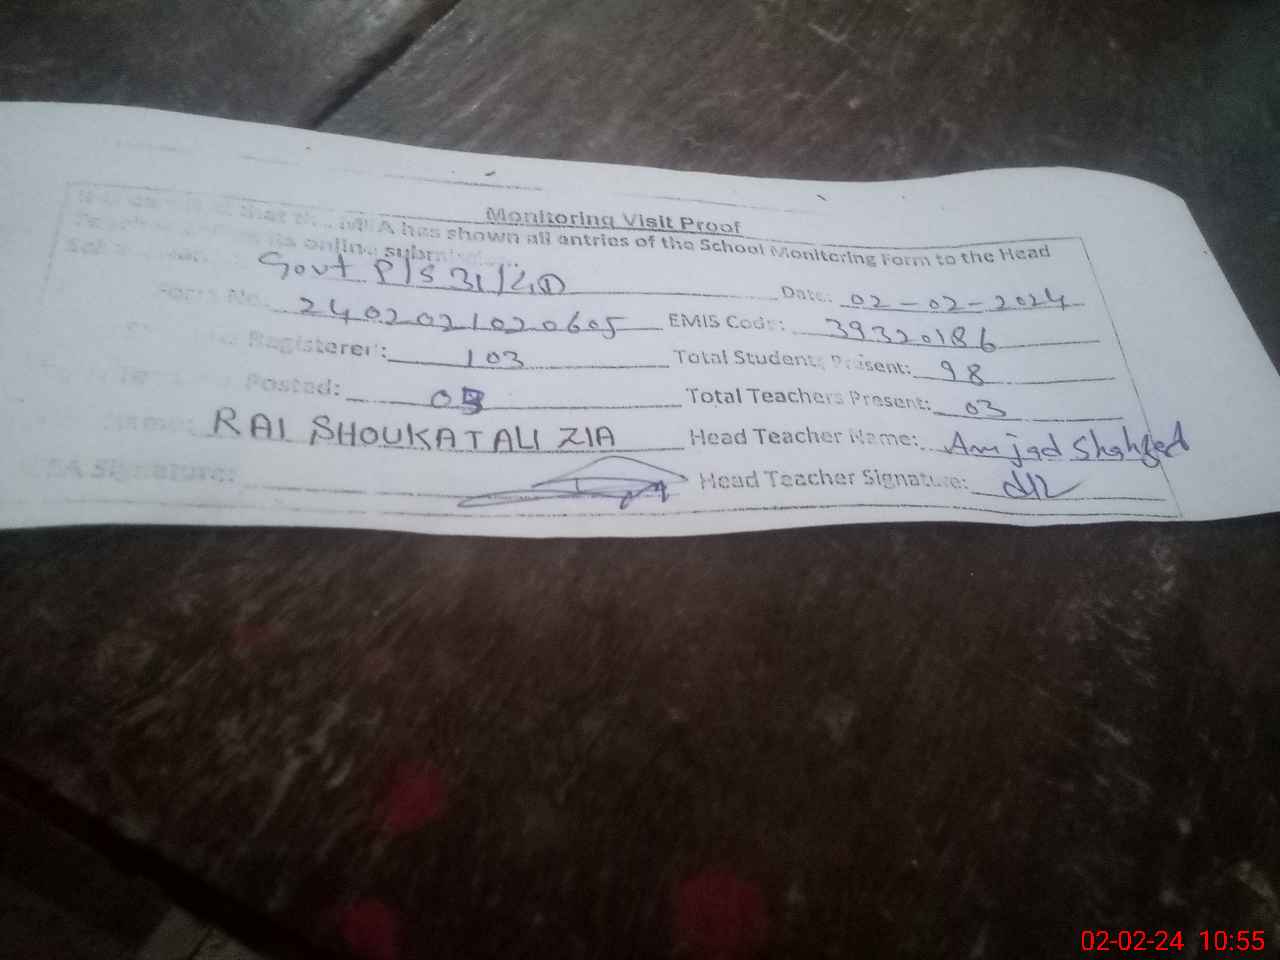 Monitoring Visit Proof
that the MEA has shown all entries of the School Monitoring Form to the Head
online submission
Govt P/S 31/2 Date: 02-02-2024
Form No: 2402021020605 EMIS Code: 39320186
Registered: 103 Total Students Present: 98
Posted: Total Teachers Present: 03
Name: RAI SHOUKAT ALI ZIA Head Teacher Name: Amjad Shahzad
Signature: Head Teacher Signature:
02-02-24 10:55